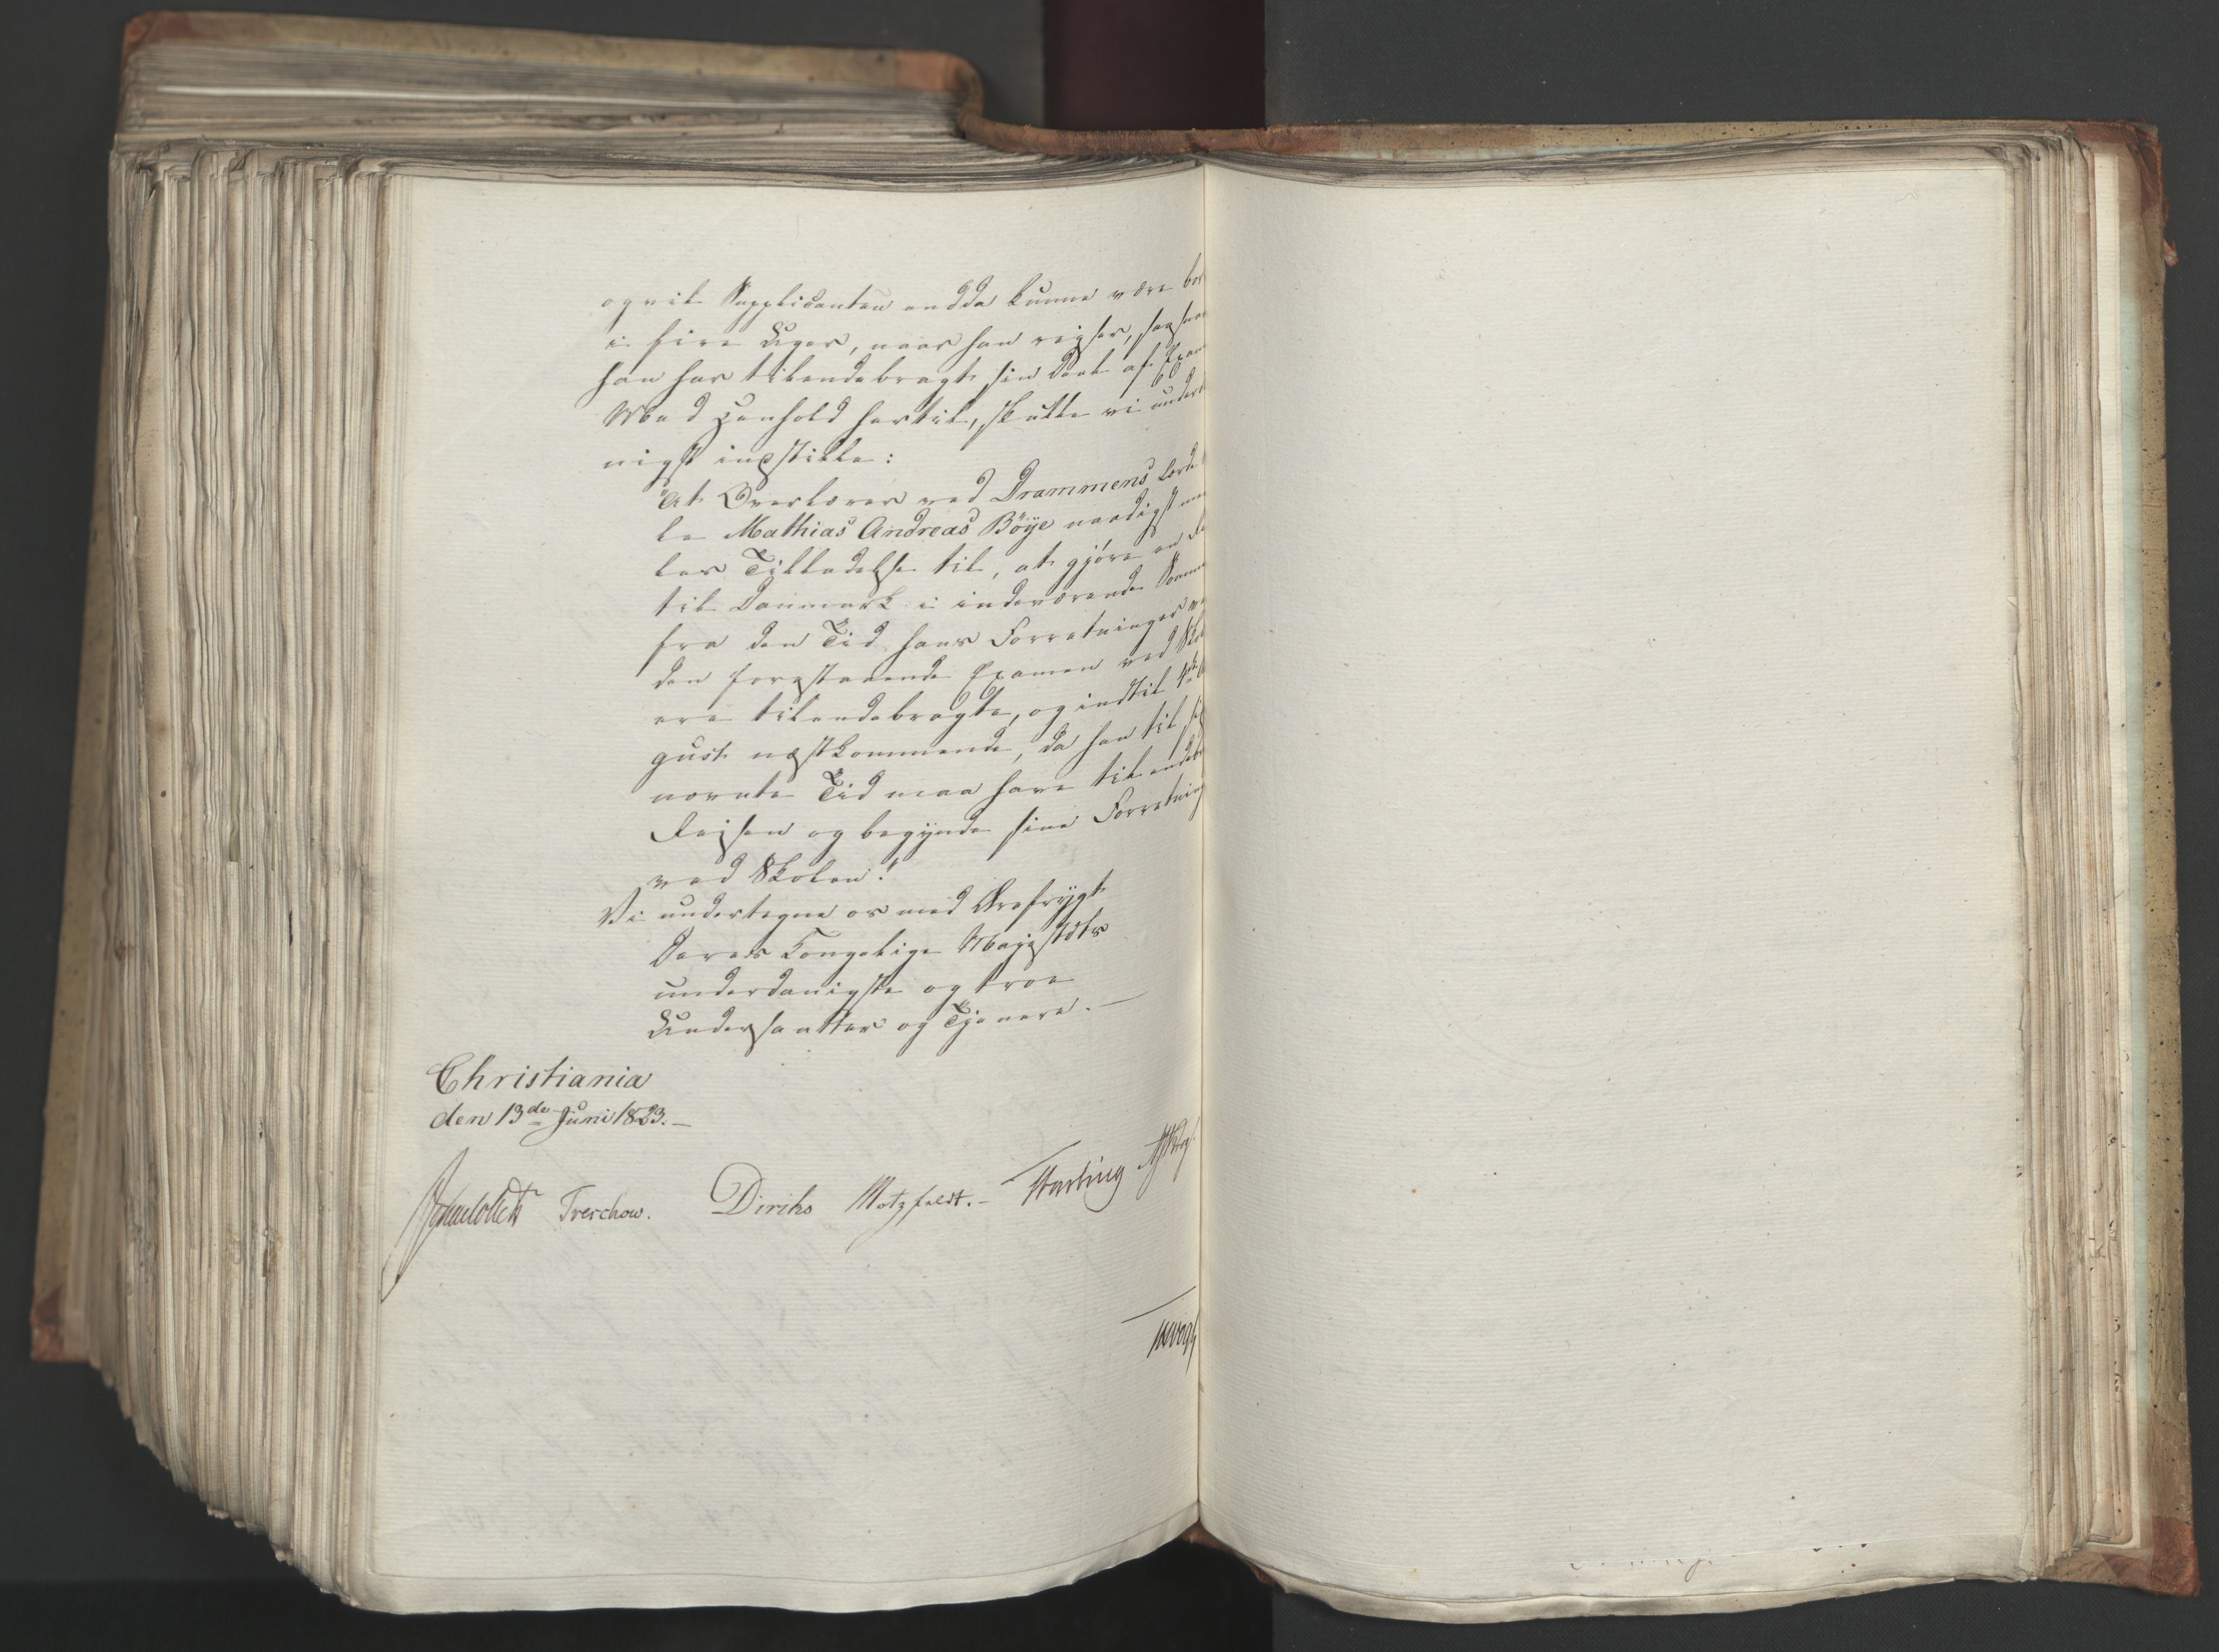 og vil Supplicanten endda kunne være bor
i fire Uger, naar han reiser, saasnar
han har tilendebragt sin Deel af Exam
Med Henhold hertil, skulle vi underd
nigst indstille:
"At Overlærer ved Drammens lærde
le Mathias Andreas Böÿe naadigst med
les Tilladelse til, at gjöre en Re
til Danmark i indeværende Somme
fra den Tid hans Forretninger ve
den forestaaende Examen ved Skol
ere tilendebragte, og indtil 4de A
gust næstkommende, da han til si
nævnte Tid maa have tilendebr
Reisen og begynde sine Forretning
ved Skolen."
Vi undertegne os med Ærefrygt
Deres Kongelige Majestæts
underdanigste og troe
Undersaatter og Tjenere. —
Christiania
den 13de Juni 1823. —
Treschow. Diriks Motzfeldt. -